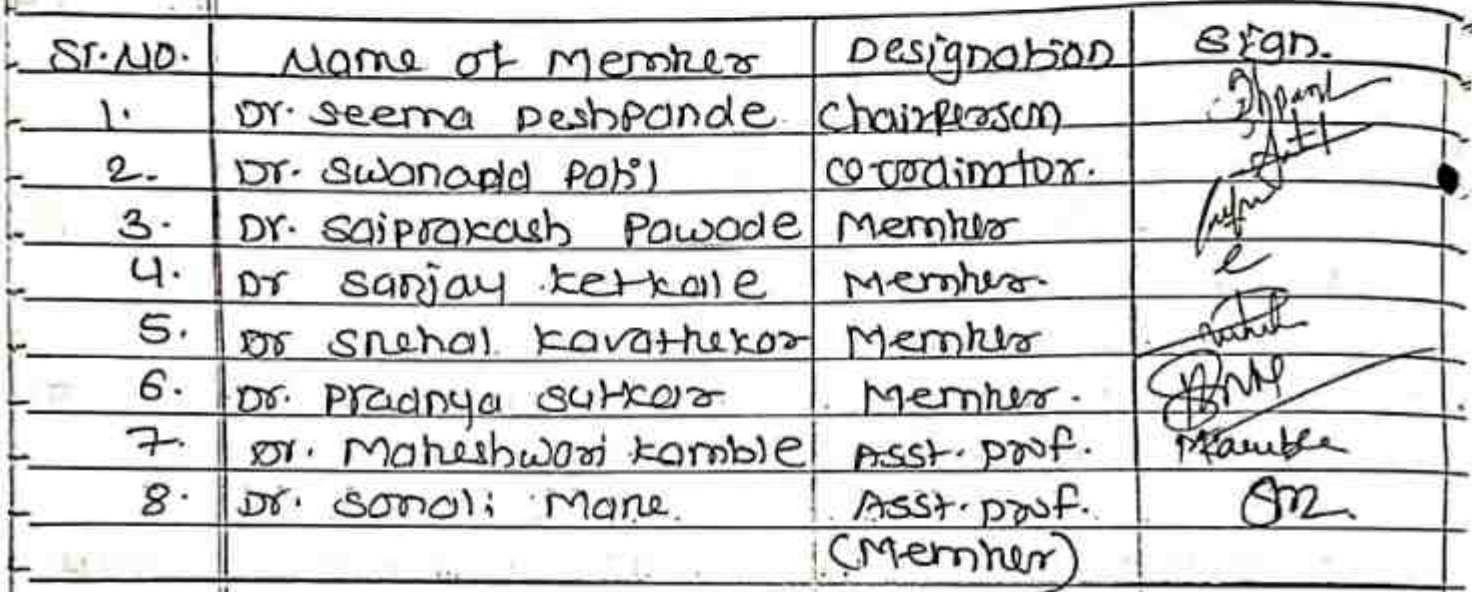 Sr.No. Name of Member Designation Sign.
1. Dr. Seema Deshpande Chairperson
2. Dr. Swanand Patil Co-ordinator.
3. Dr. Saiprakash Pawade Member
4. Dr Sanjay Ketkale Member.
5. Dr Snehal Kavathekar Member
6. Dr. Pradnya Sutkar Member.
7. Dr. Maheshwari Kamble Asst. prof. MKamble
8. Dr. Sonali Mane. Asst. prof.
(Member)